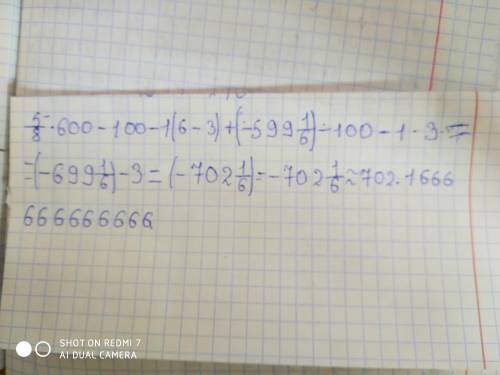 5/8 · 600 - 100 - 1(6 - 3) + (-599 1/6) - 100 - 1 · 3 =
= (-699 1/6) - 3 = (-702 1/6) = -702 1/6 ≈ 702.1666
666666666
SHOT ON REDMI 7
AI DUAL CAMERA